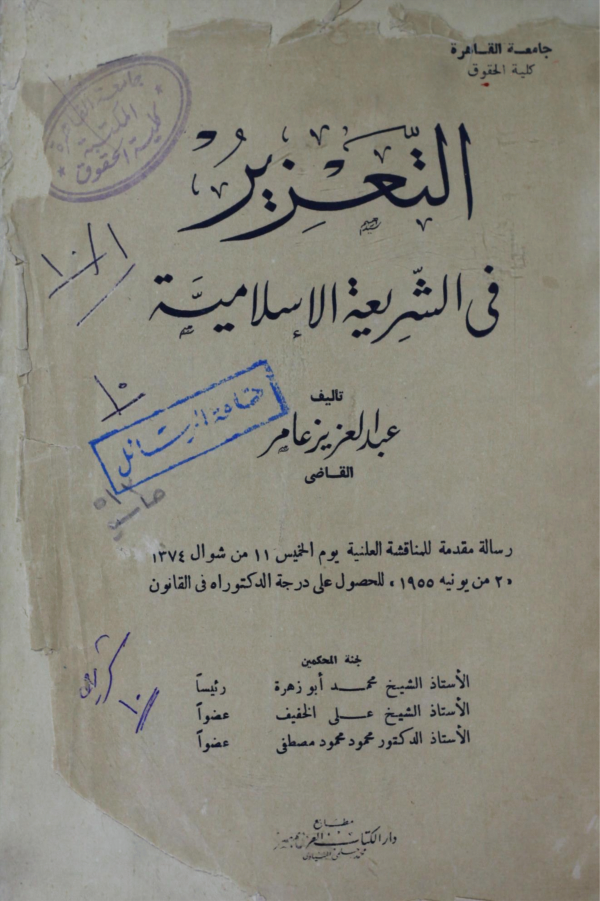 جامعة القاهرة
كلية الحقوق
جامعة القاهرة
المكتبة
كلية الحقوق
التَّعزِيرُ
فى الشّرِيعة الإسلاميَّة
١٠/١
١٠
تأليف
عبد العزيز عامر
القاضى
قاعة الرسائل
رسالة مقدمة للمناقشة العلنية يوم الخميس ١١ من شوال ١٣٧٤
«٢ من يونيه ١٩٥٥» للحصول على درجة الدكتوراه فى القانون
لجنة المحكمين
الأستاذ الشيخ محمد أبو زهرة رئيساً
الأستاذ الشيخ على الخفيف عضواً
الأستاذ الدكتور محمود محمود مصطفى عضواً
١٠
مطابع
دار الكتاب العربى بمصر
محمد حلمى المنياوى